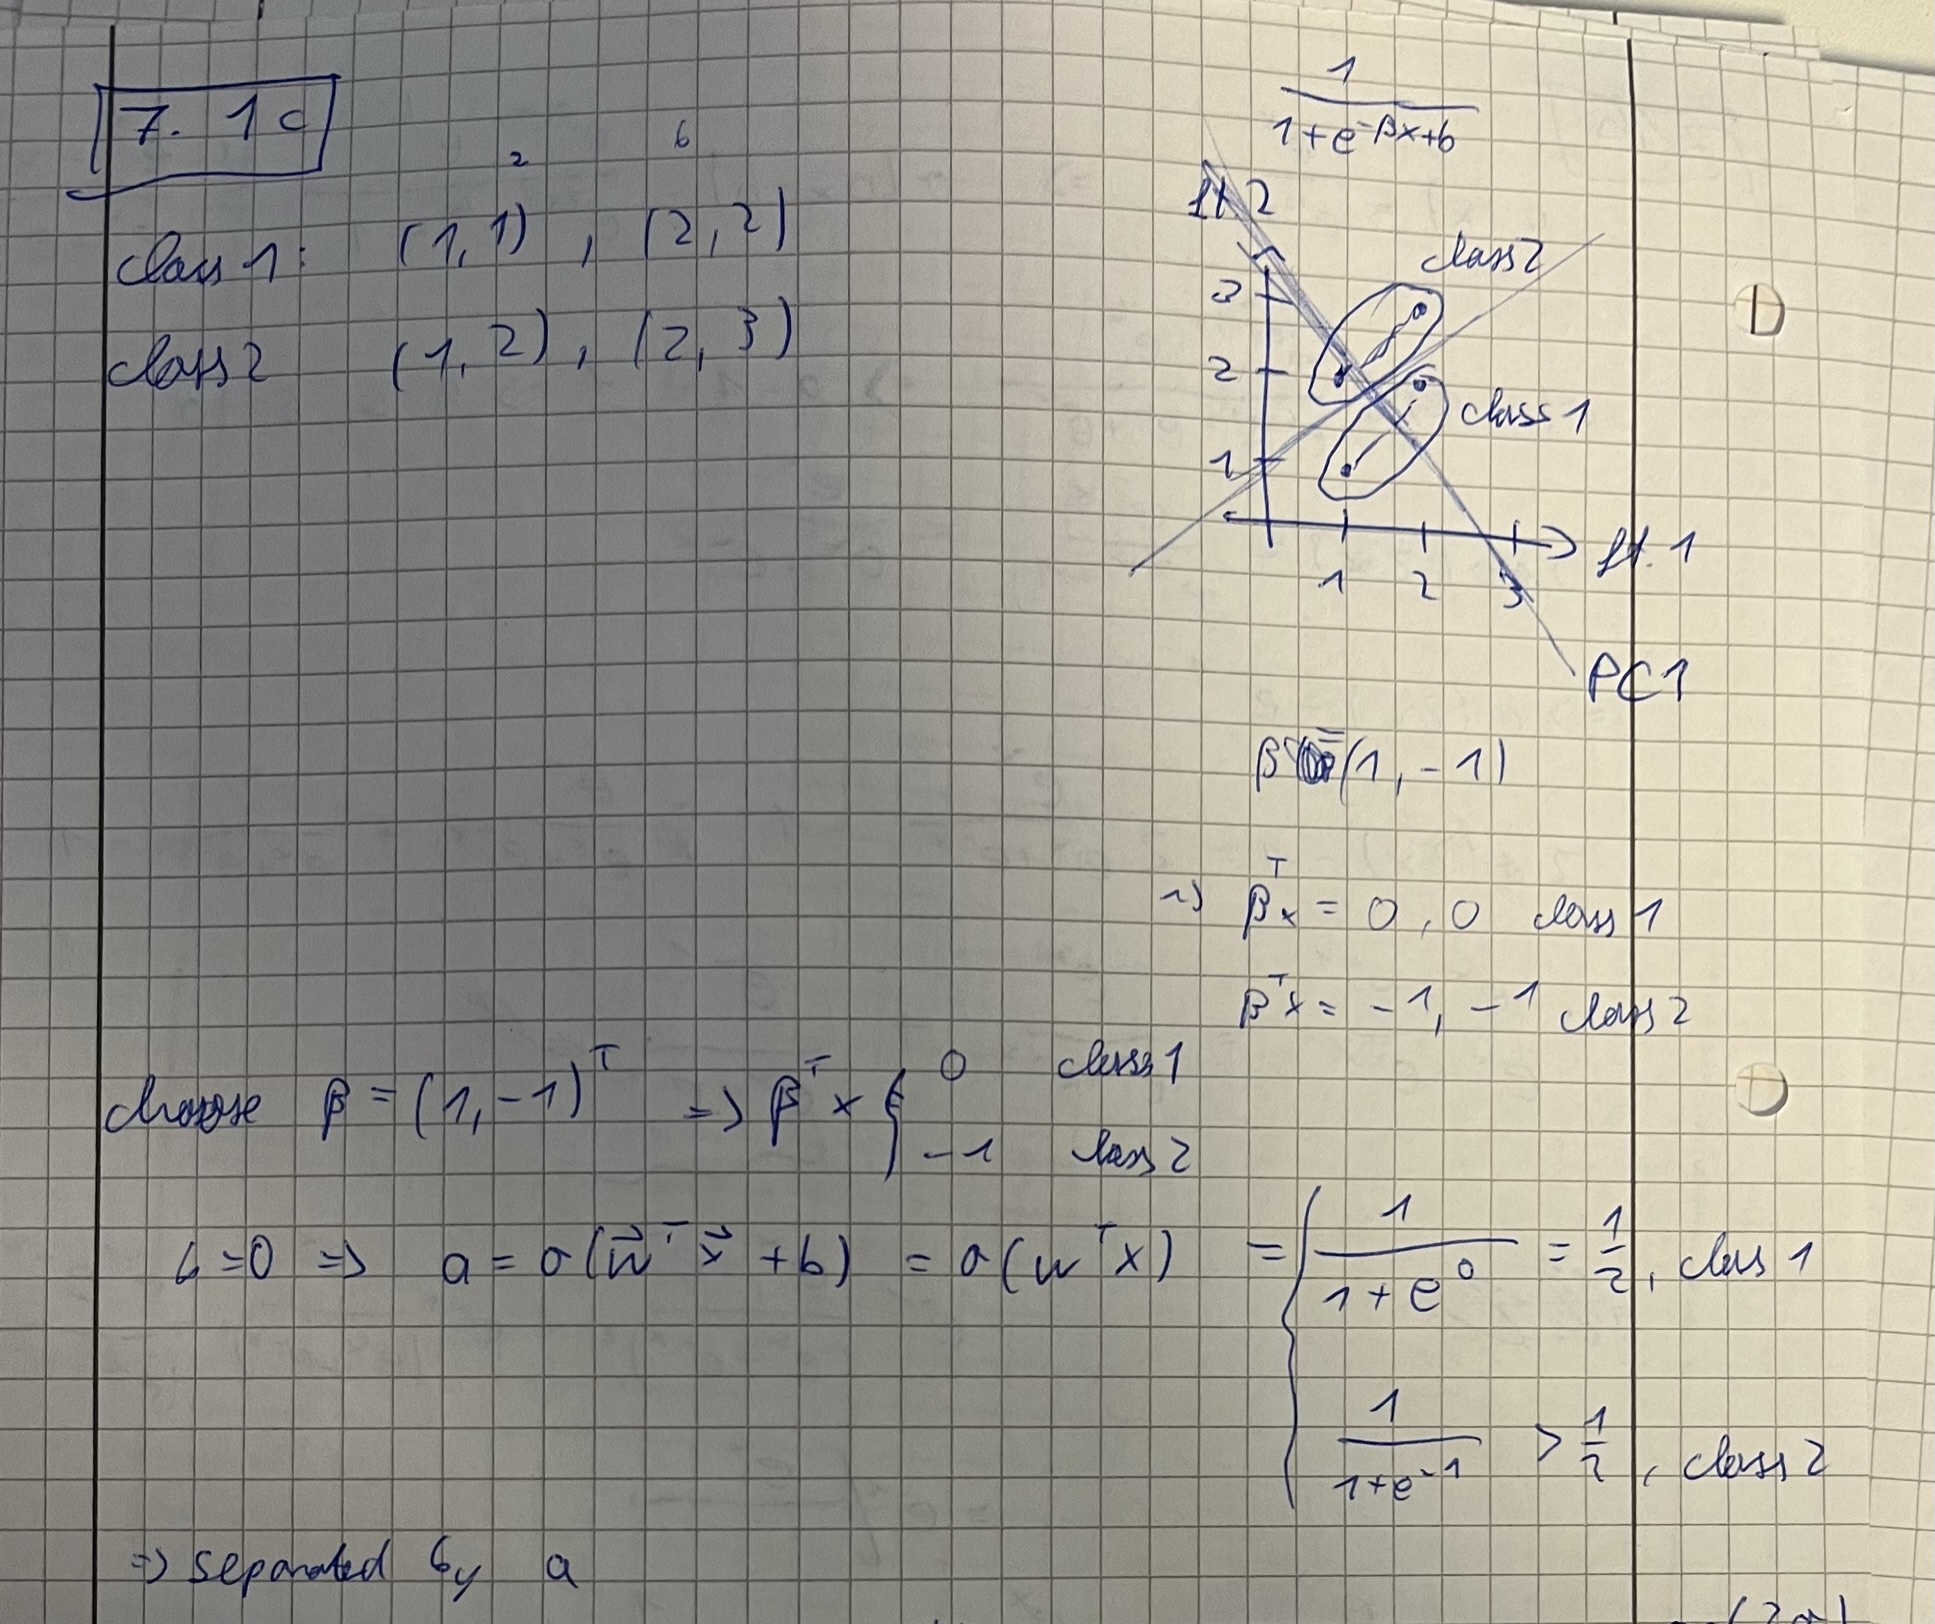 7. 1c
2 6
class 1: (1,1) , (2,2)
class 2 (1,2) , (2,3)
1
1+e^-βx+b
ft 2
class 2
3
2
class 1
1
ft. 1
1 2 3
PC1
β = (1, -1)
β^T x = 0, 0 class 1
β^T x = -1, -1 class 2
choose β = (1, -1)^T => β^T x { 0 class 1
-1 class 2
b=0 => a = σ(w^T x + b) = σ(w^T x) = { 1/(1+e^0) = 1/2, class 1
1/(1+e^-1) > 1/2, class 2
=> separated by a